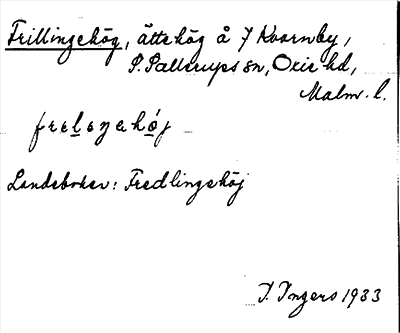 Frillingehög, ättehög å 7 Kvarnby,
S. Sallerups sn, Oxie hd,
Malm. l.
freleŋahöj
Landeboken: Fredlingehöj
I. Ingers 1933